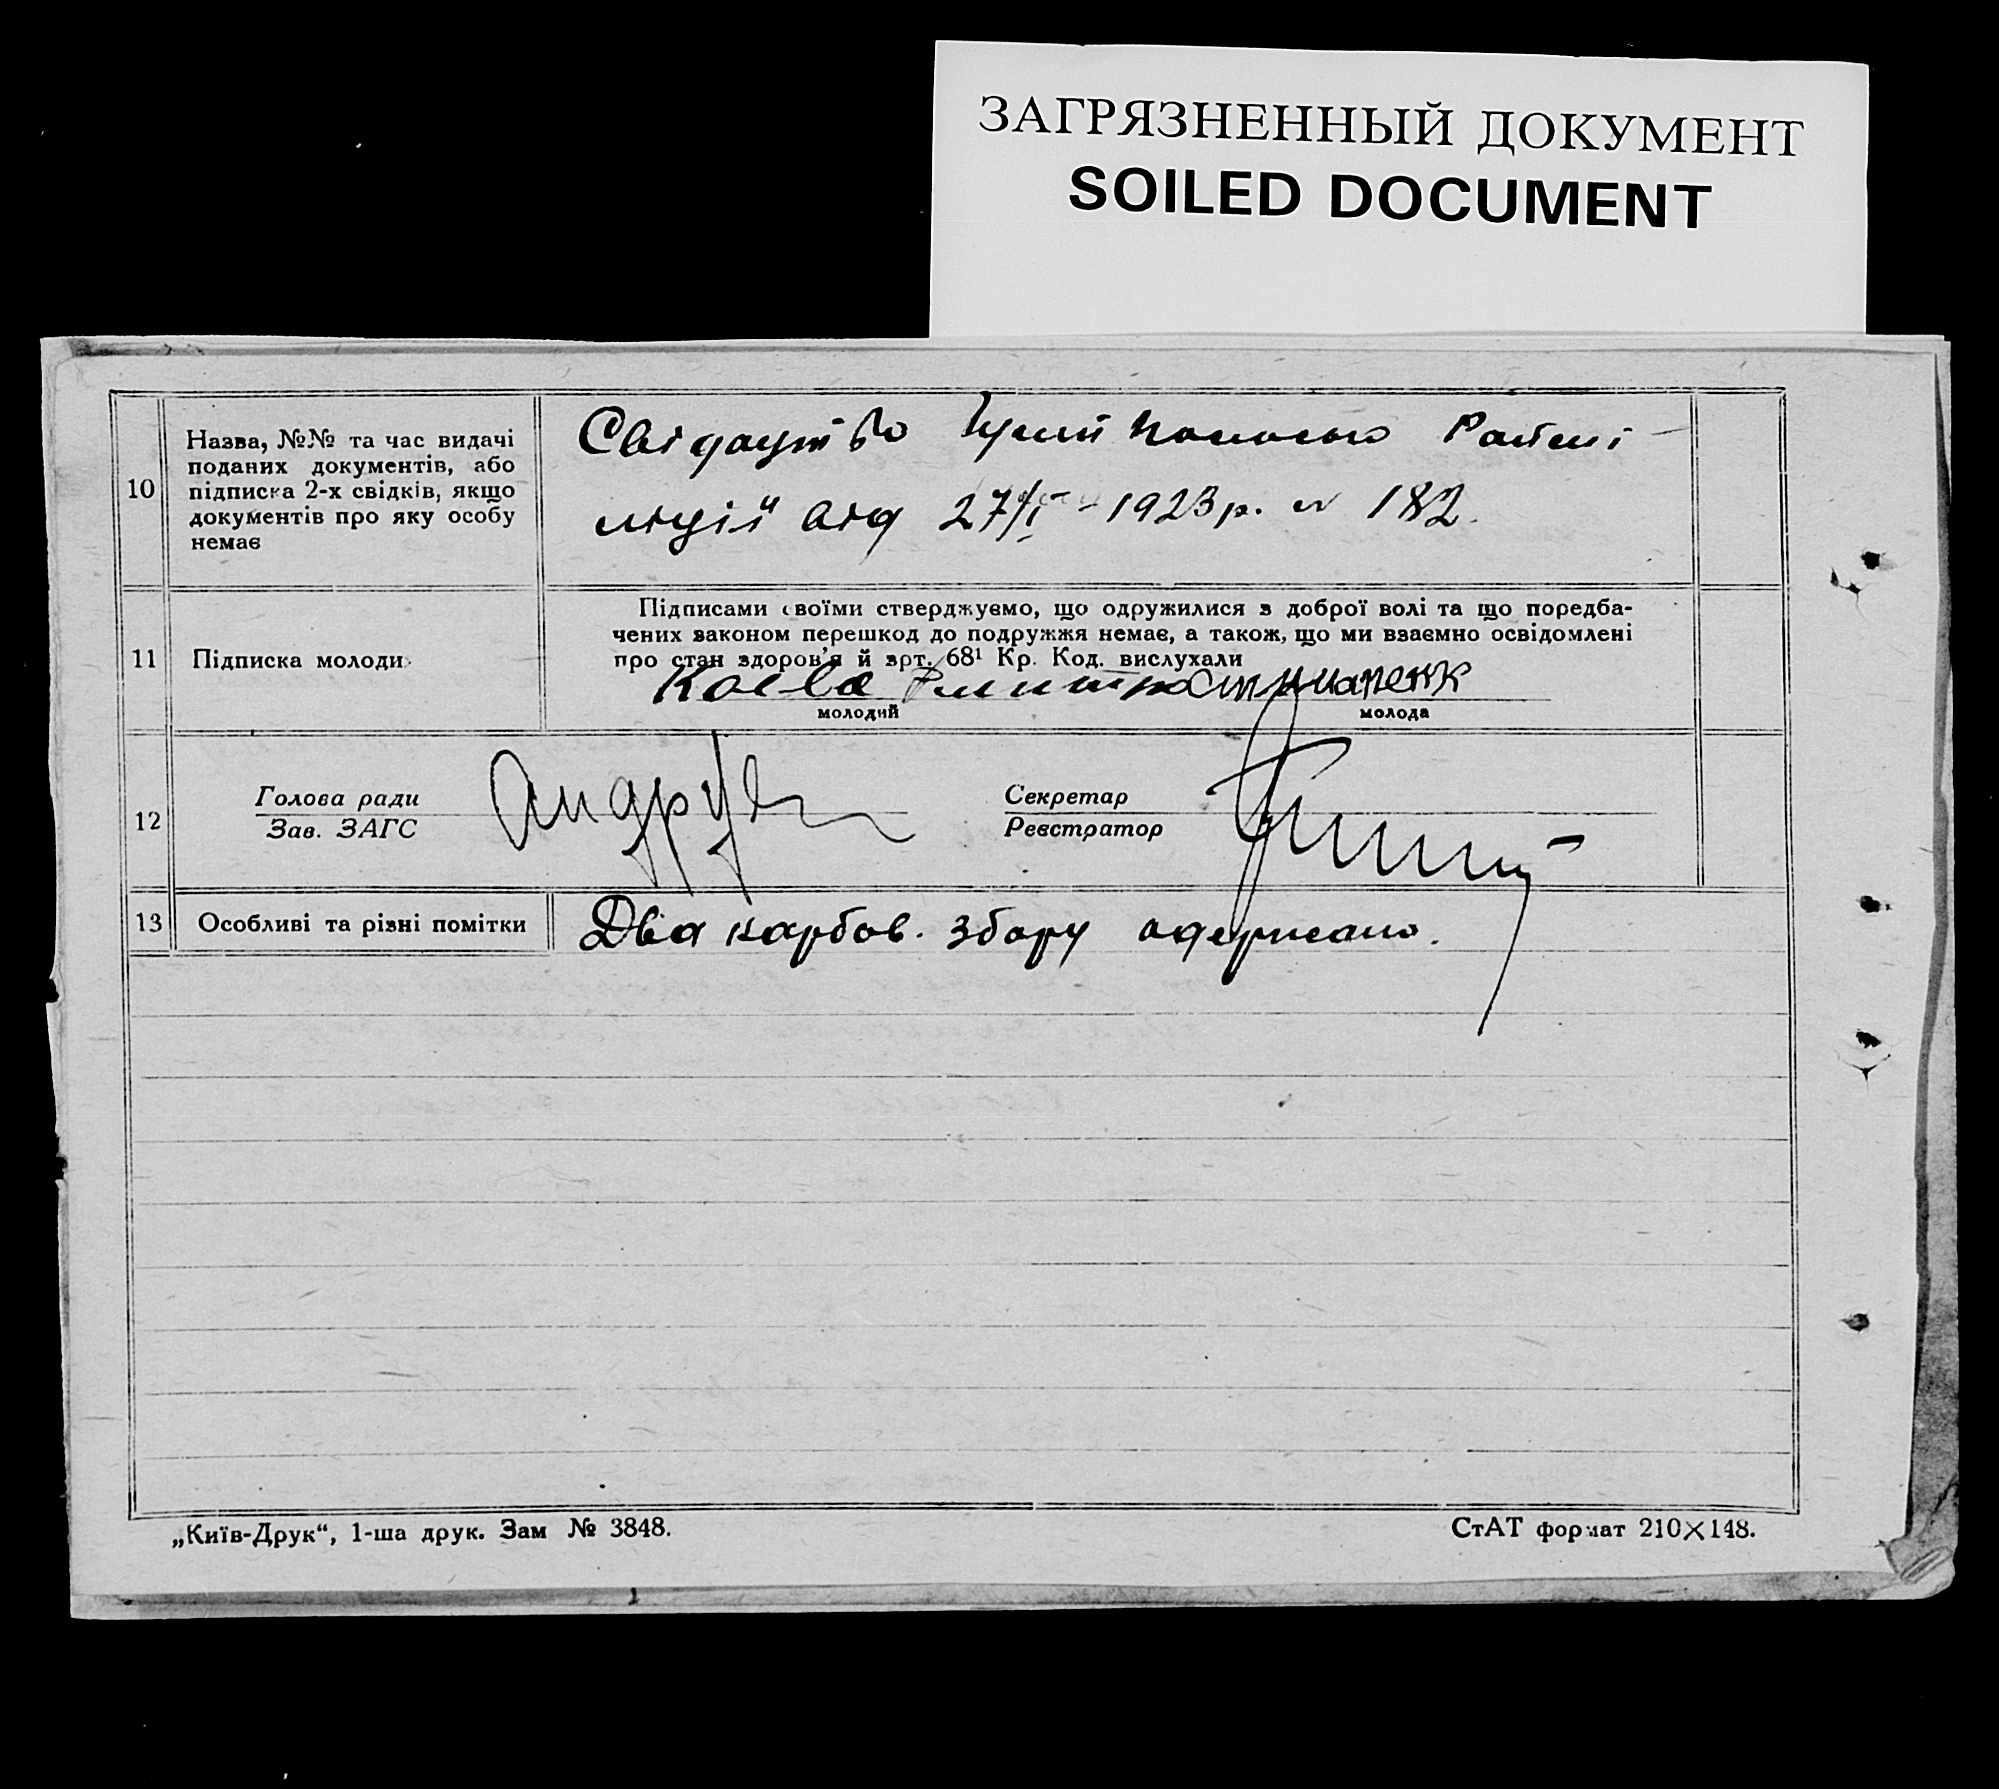 ЗАГРЯЗНЕННЫЙ ДОКУМЕНТ
SOILED DOCUMENT
10
Назва, №№ та час видачі
поданих документів, або
підписка 2-х свідків, якщо
документів про яку особу
немає
Свідоцтво Рай мі-
ліції від 1923 р. № 182.
11
Підписка молоди
Підписами своїми стверджуємо, що одружилися з доброї волі та що поредба-
чених законом перешкод до подружжя немає, а також, що ми взаємно освідомлені
про стан здоров'я й арт. 68¹ Кр. Код. вислухали
молодий молода
12
Голова ради
Зав. ЗАГС
Секретар
Реєстратор
13
Особливі та різні помітки
Два карбов. збору одержано.
„Київ-Друк“, 1-ша друк. Зам № 3848.
СтАТ формат 210×148.